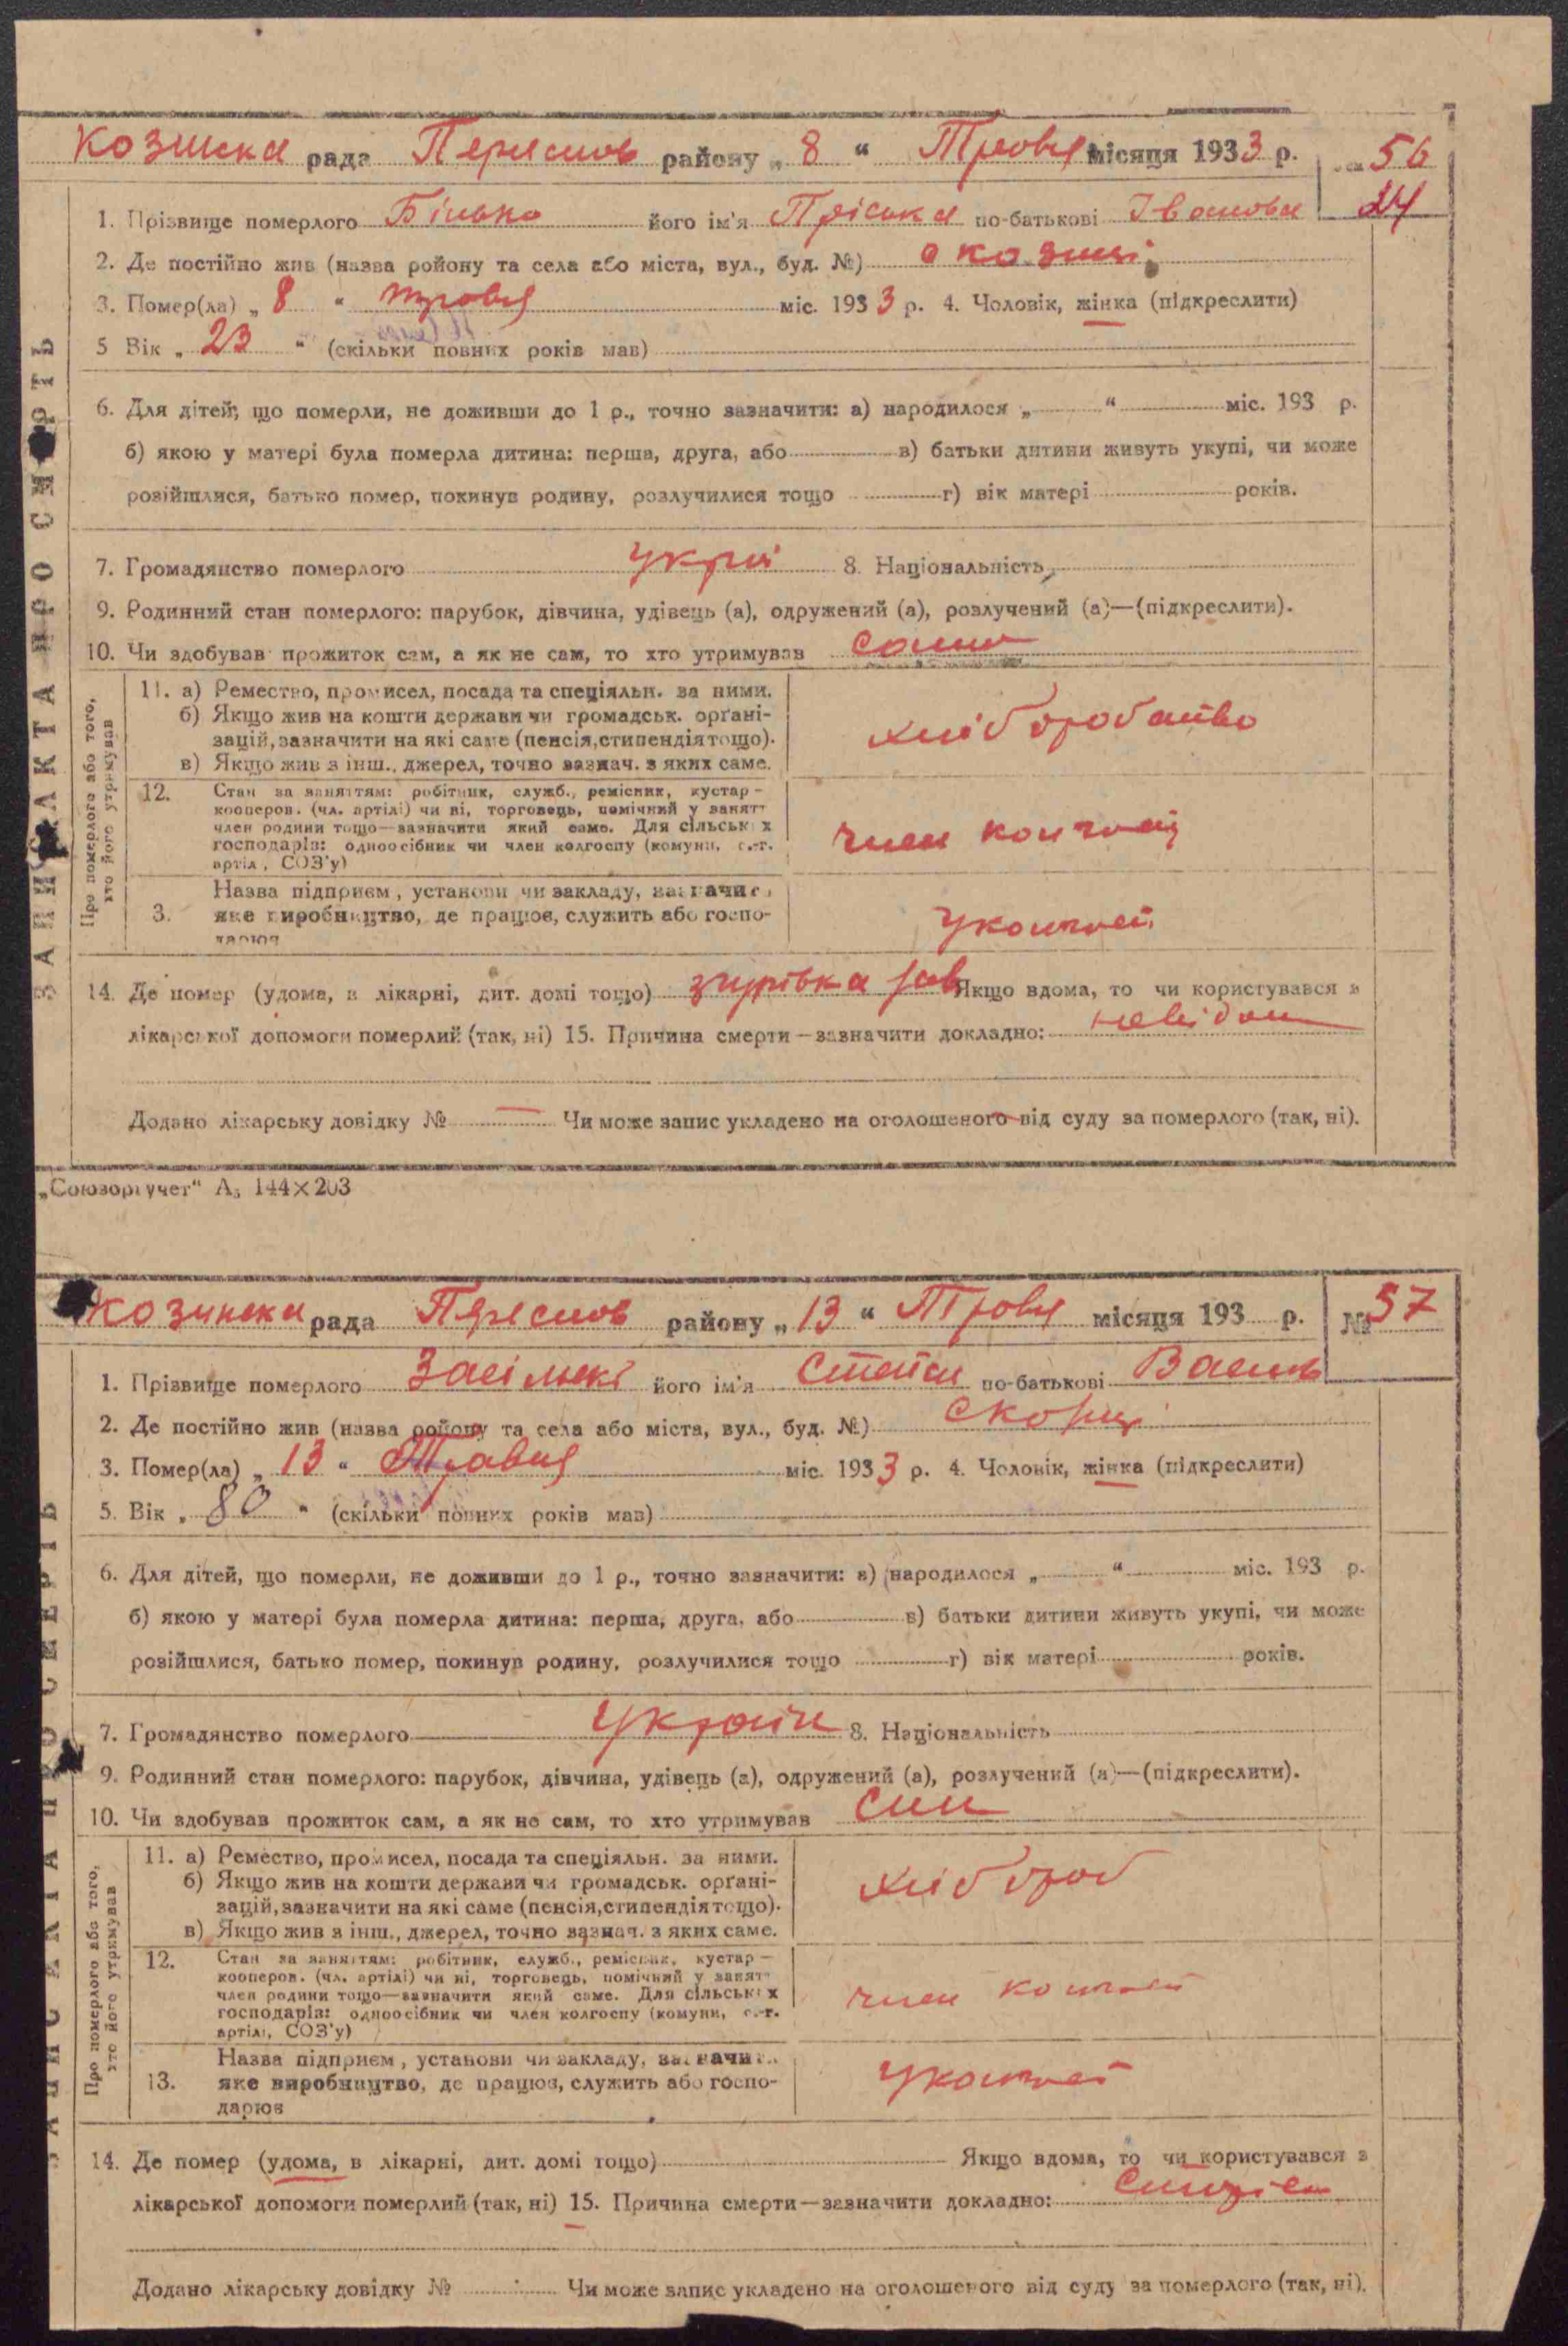 Козинска рада Переяслов району „ 8 “ Травня місяця 1933 р. 56
24
1. Прізвище померлого Білько його ім'я Пріська по-батькові Іванова
2. Де постійно жив (назва ройону та села або міста, вул., буд. №) с Козинці
3. Помер(ла) „ 8 “ травня міс. 1933 р. 4. Чоловік, жінка (підкреслити)
5 Вік „ 23 “ (скільки повних років мав)
6. Для дітей, що померли, не доживши до 1 р., точно зазначити: а) народилося „ “ міс. 193 р.
б) якою у матері була померла дитина: перша, друга, або в) батьки дитини живуть укупі, чи може
розійшлися, батько помер, покинув родину, розлучилися тощо г) вік матері років.
7. Громадянство померлого укра 8. Національність
9. Родинний стан померлого: парубок, дівчина, удівець (а), одружений (а), розлучений (а)—(підкреслити).
10. Чи здобував прожиток сам, а як не сам, то хто утримував сама
ЗАПИС АКТА ПРО СМЕРТЬ
Про померлого або того, хто його утримував
11. а) Ремество, промисел, посада та спеціяльн. за ними.
б) Якщо жив на кошти держави чи громадськ. орґані-
зацій, зазначити на які саме (пенсія, стипендія тощо).
в) Якщо жив з інш., джерел, точно зазнач. з яких саме.
хліборобство
12. Стан за заняттям: робітник, служб., ремісник, кустар –
кооперов. (чл. артілі) чи ні, торговець, помічний у занятт
член родини тощо—зазначити який саме. Для сільськ х
господарів: одноосібник чи член колгоспу (комуни, с.-г.
артіл, СОЗ'у)
член колгосп
3. Назва підприєм, установи чи закладу, зазначит
яке виробництво, де працює, служить або госпо-
дарює
у колгосп
14. Де помер (удома, в лікарні, дит. домі тощо) згурівка Якщо вдома, то чи користувався з
лікарської допомоги померлий (так, ні) 15. Причина смерти—зазначити докладно: невідом
Додано лікарську довідку № — Чи може запис укладено на оголошеного від суду за померлого (так, ні).
„Союзоргучет“ А₅ 144×203
Козинска рада Переяслов району „ 13 “ Травня місяця 193 р. № 57
1. Прізвище померлого його ім'я по-батькові Васил
2. Де постійно жив (назва ройону та села або міста, вул., буд. №)
3. Помер(ла) „ 13 “ Травня міс. 1933 р. 4. Чоловік, жінка (підкреслити)
5. Вік „ 80 “ (скільки повних років мав)
6. Для дітей, що померли, не доживши до 1 р., точно зазначити: а) народилося „ “ міс. 193 р.
б) якою у матері була померла дитина: перша, друга, або в) батьки дитини живуть укупі, чи може
розійшлися, батько помер, покинув родину, розлучилися тощо г) вік матері років.
7. Громадянство померлого Україн 8. Національність
9. Родинний стан померлого: парубок, дівчина, удівець (а), одружений (а), розлучений (а)—(підкреслити).
10. Чи здобував прожиток сам, а як не сам, то хто утримував син
ЗАПИС АКТА ПРО СМЕРТЬ
Про померлого або того, хто його утримував
11. а) Ремество, промисел, посада та спеціяльн. за ними.
б) Якщо жив на кошти держави чи громадськ. орґані-
зацій, зазначити на які саме (пенсія, стипендія тощо).
в) Якщо жив з інш., джерел, точно зазнач. з яких саме.
хлібороб
12. Стан за заняттям: робітник, служб., ремісник, кустар –
кооперов. (чл. артілі) чи ні, торговець, помічний у занятт
член родини тощо—зазначити який саме. Для сільськ х
господарів: одноосібник чи член колгоспу (комуни, с.-г.
артілі, СОЗ'у)
член колгосп
13. Назва підприєм, установи чи закладу, зазначит
яке виробництво, де працює, служить або госпо-
дарює
у колгосп
14. Де помер (удома, в лікарні, дит. домі тощо) Якщо вдома, то чи користувався з
лікарської допомоги померлий (так, ні) 15. Причина смерти—зазначити докладно:
Додано лікарську довідку № Чи може запис укладено на оголошеного від суду за померлого (так, ні).